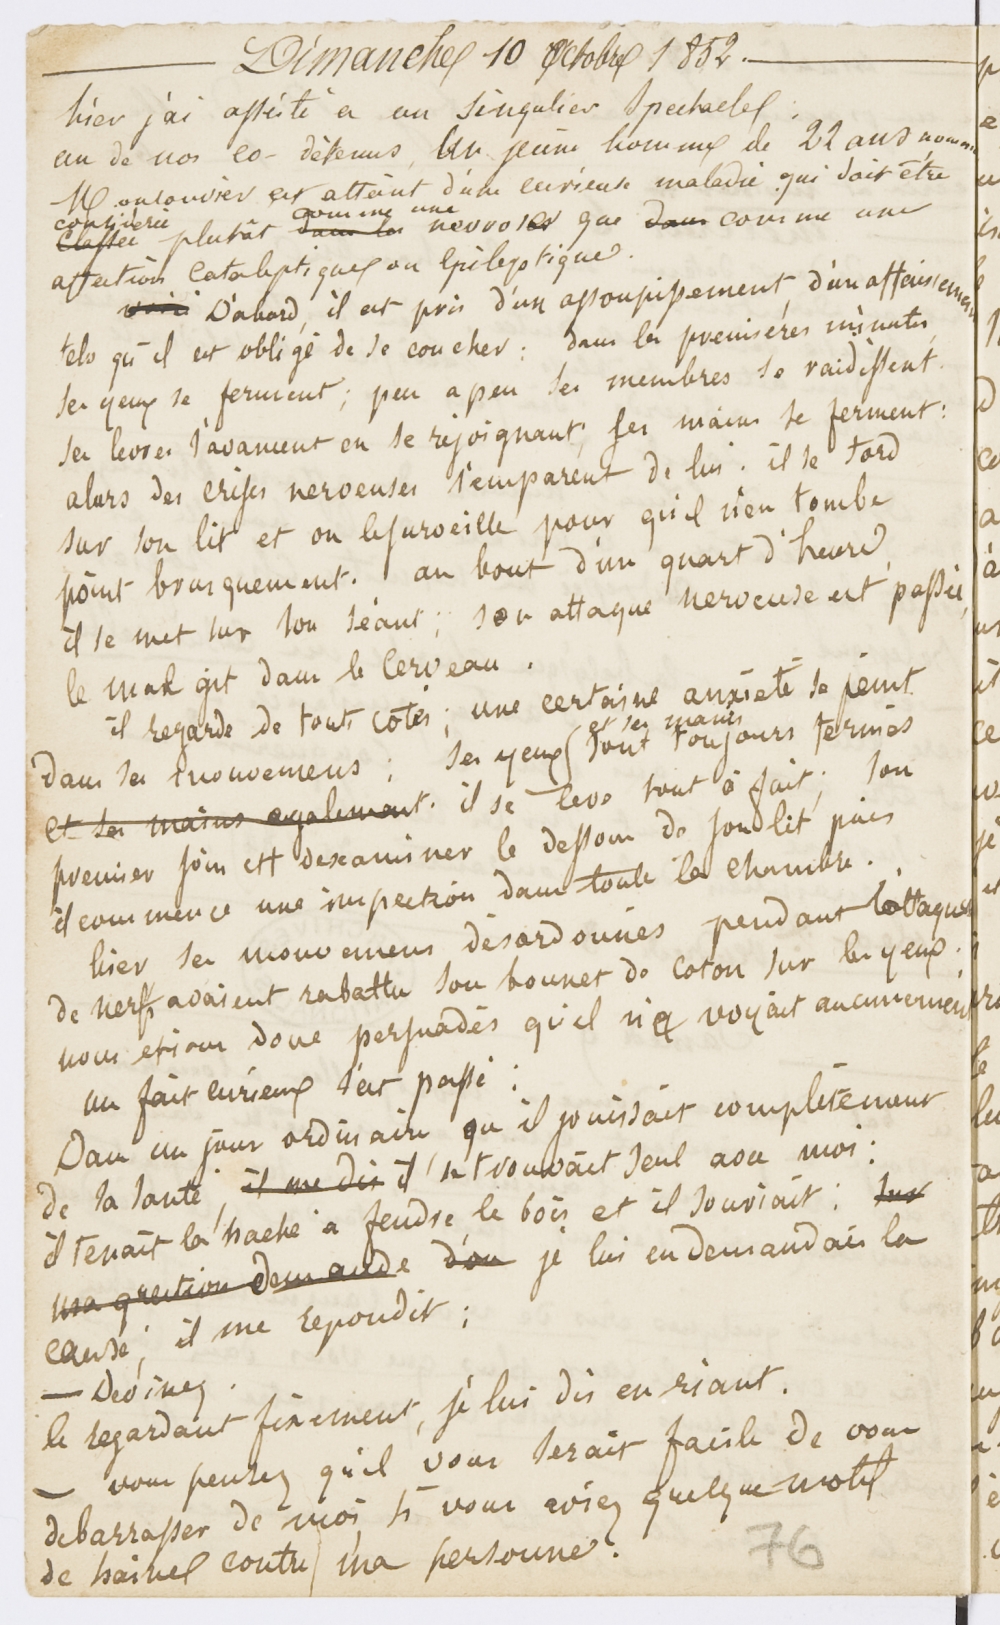 Dimanche 10 Octobre 1852.
hier j'ai assisté a un singulier spectacle :
un de nos co-détenus, Un jeune homme de 22 ans nommé
est atteint d'une curieuse maladie qui doit être
considérée comme une
Classée plutôt dans les nevroses que dans comme une
affection Cataleptique ou Epileptique.
voici D'abord, il est pris d'un assoupissement, d'un affaissement
tels qu'il est obligé de se coucher : dans les premiséres minutes,
ses yeux se ferment ; peu a peu ses membres se raidissent.
ses levres s'avancent en se rejoignant, ses mains se ferment :
alors des crises nerveuses s'emparent de lui. il se tord
sur son lit et on le surveille pour qu'il n'en tombe
point brusquement. au bout d'un quart d'heure,
il se met sur son séant ; son attaque nerveuse est passée,
le mal git dans le cerveau.
il regarde de touts côtés ; une certaine anxiété se peint
et ses mains
dans ses mouvemens ; ses yeux sont toujours fermés
et ses mains egalement. il se leve tout à fait ; son
premier soin est d'examiner le dessous de son lit puis
il commence une inspection dans toute la chambre.
hier ses mouvemens désordonnés pendant l'attaque
de nerfs avaient rabattu son bonnet de coton sur les yeux.
nous etions donc persuadés qu'il n'y voyait aucunement
un fait curieux s'est passé :
Dans un jour ordinaire, qu'il jouissait complétement
de sa santé, il me dis il se trouvait seul avec moi :
il tenait la hache a fendre le bois et il souriait ; sur
ma question demande d'ou je lui en demandais la
cause, il me repondit :
— Devinez.
le regardant fixement, je lui dis en riant.
— vous pensez qu'il vous serait facile de vous
debarrasser de moi, si vous aviez quelque motif
de haine contre ma personne.
76